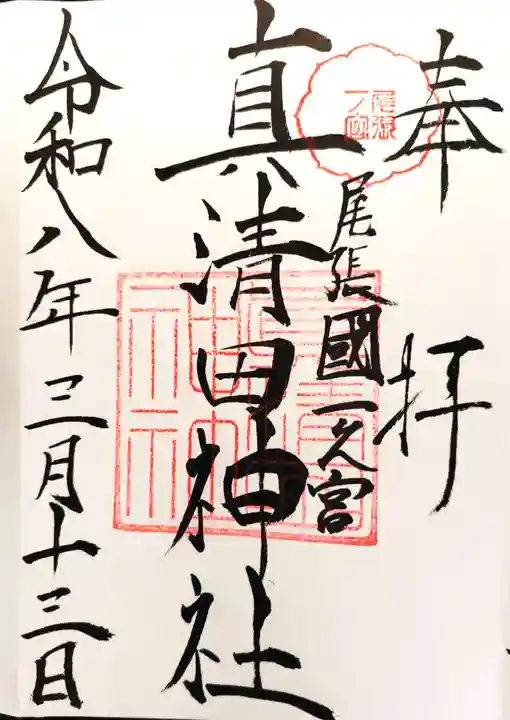 奉拝
尾張
一ノ宮
尾張國一之宮
真清田神社
真清田神社
令和八年三月十三日